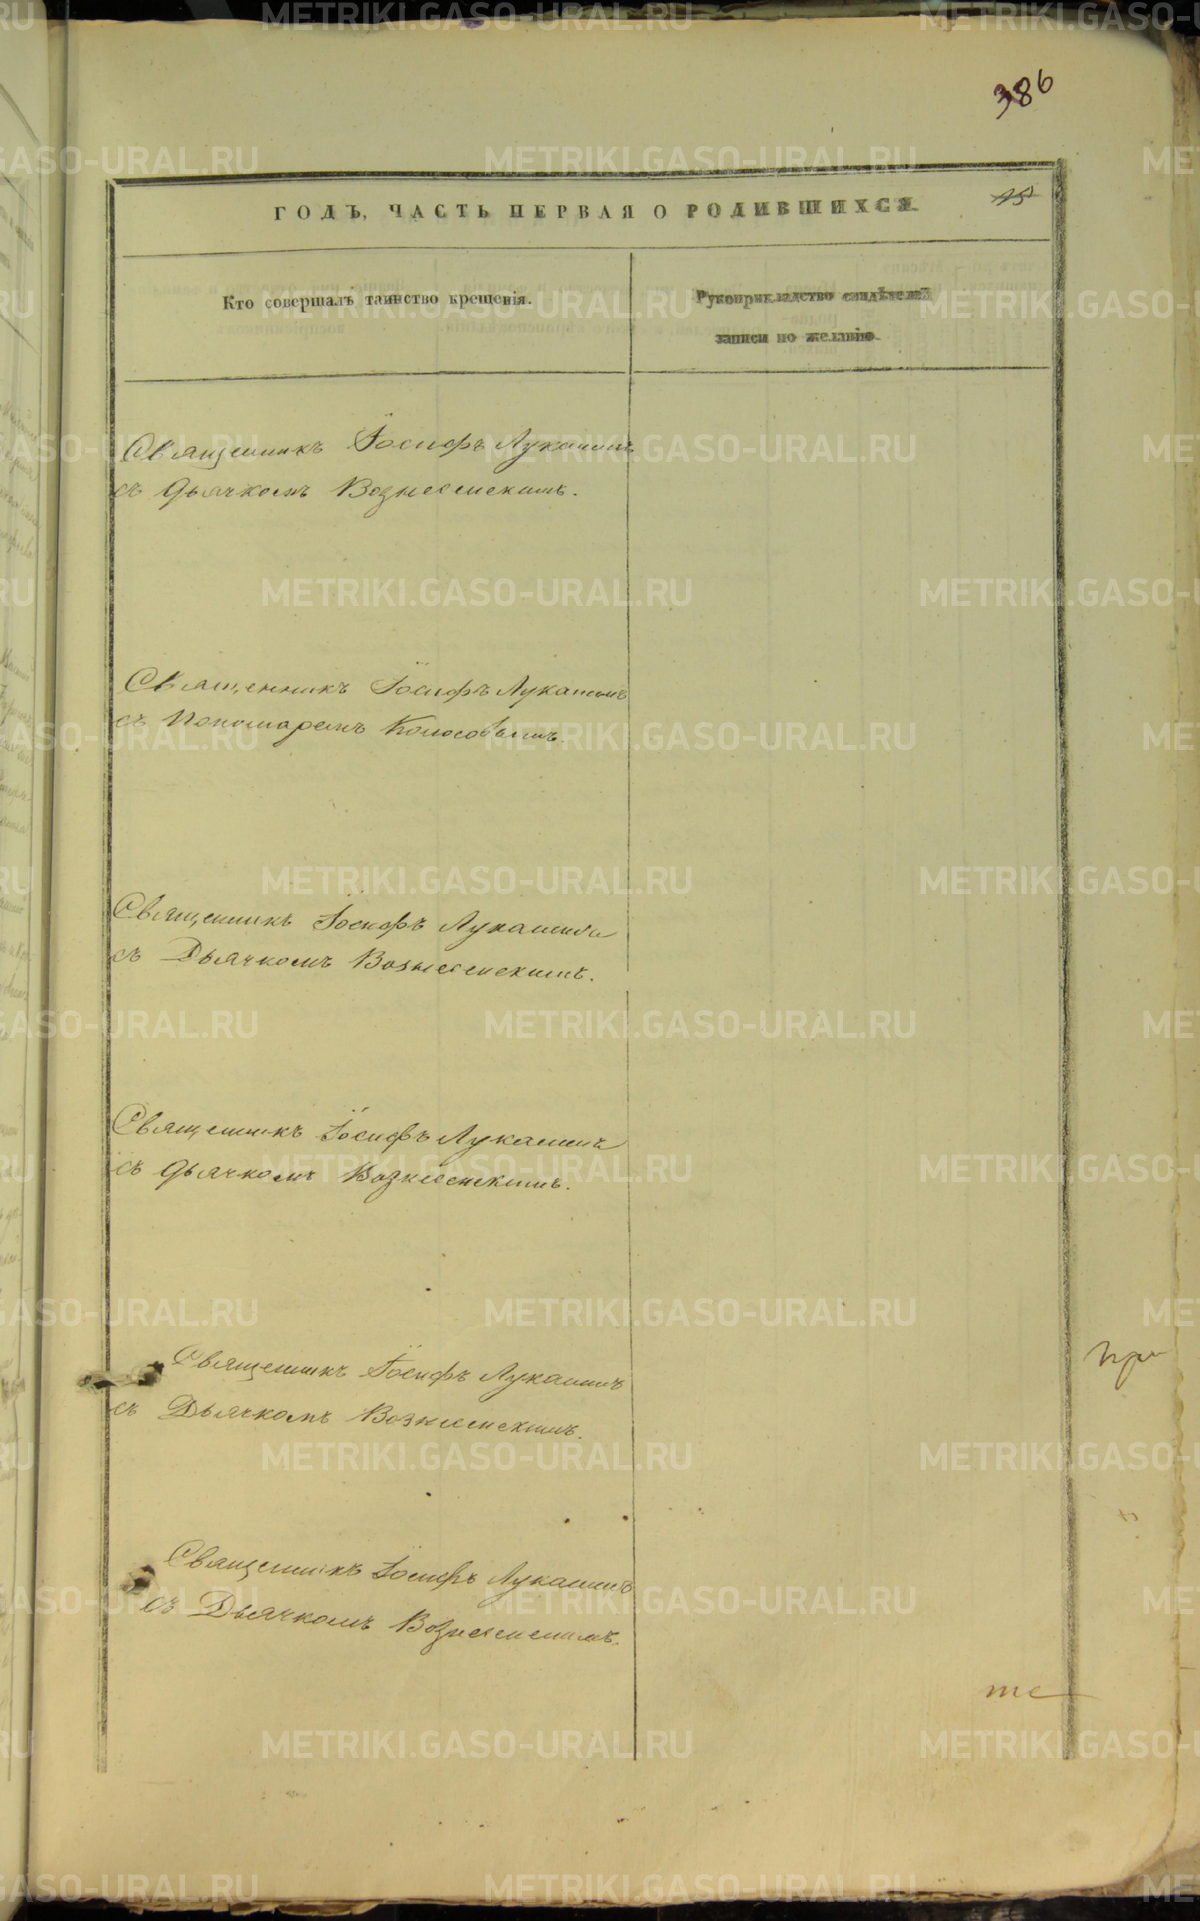 386
ГОДЪ, ЧАСТЬ ПЕРВАЯ О РОДИВШИХСЯ.
15
Кто совершалъ таинство крещенія.
Рукоприкладство свидѣтелей
записи по желанію.
Священникъ Іосифъ Лукашинъ
съ Дьячкомъ Вознесенскимъ.
Священникъ Іосифъ Лукашинъ
съ Пономаремъ Колосовымъ.
Священникъ Іосифъ Лукашинъ
съ Дьячкомъ Вознесенскимъ.
Священникъ Іосифъ Лукашинъ
съ Дьячкомъ Вознесенскимъ.
Священникъ Іосифъ Лукашинъ
съ Дьячкомъ Вознесенскимъ.
Священникъ Іосифъ Лукашинъ
съ Дьячкомъ Вознесенскимъ.
при
те
METRIKI.GASO-URAL.RU